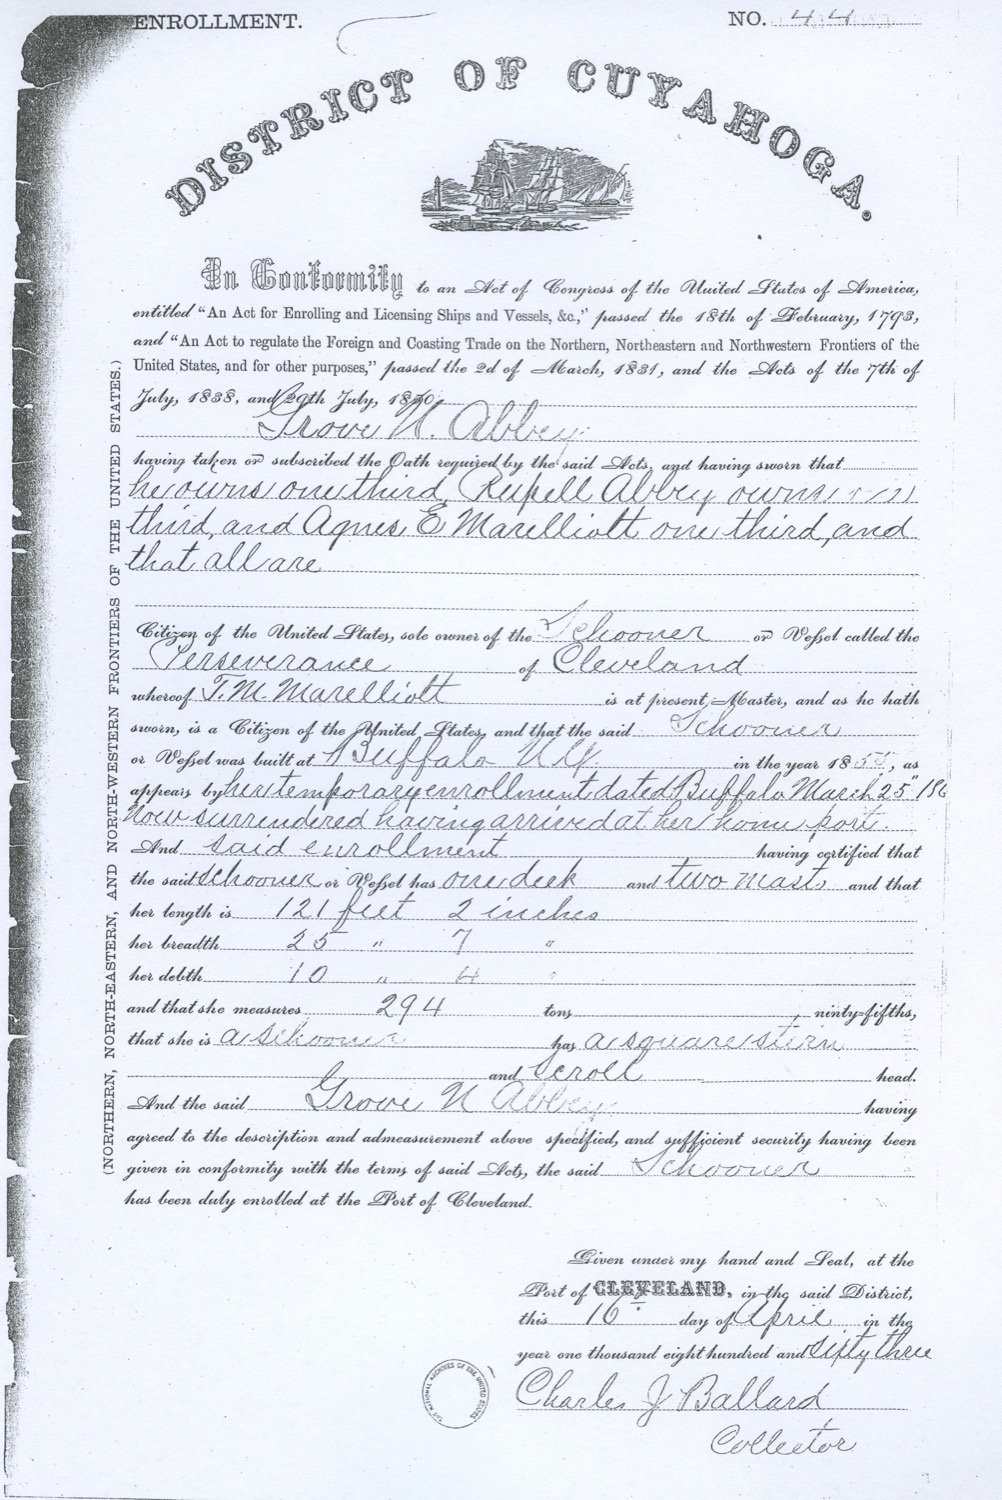 ENROLLMENT. NO. 44
DISTRICT OF CUYAHOGA.
In Conformity to an Act of Congress of the United States of America,
entitled "An Act for Enrolling and Licensing Ships and Vessels, &c.," passed the 18th of February, 1793,
and "An Act to regulate the Foreign and Coasting Trade on the Northern, Northeastern and Northwestern Frontiers of the
United States, and for other purposes," passed the 2d of March, 1831, and the Acts of the 7th of
July, 1838, and 29th July, 1850,
Grove N. Abbey
having taken or subscribed the Oath required by the said Acts, and having sworn that
he owns one third, Russell Abbey owns
third, and Agnes E Marelliott one third, and
that all are
Citizen of the United States, sole owner of the Schooner or Vessel called the
Perseverance of Cleveland
whereof T. M. Marelliott is at present Master, and as he hath
sworn, is a Citizen of the United States, and that the said Schooner
or Vessel was built at Buffalo N.Y. in the year 1855, as
appears by her temporary enrollment dated Buffalo March 25"
Now surrendered having arrived at her home port.
And said enrollment having certified that
the said Schooner or Vessel has one deck and two masts and that
her length is 121 feet 2 inches
her breadth 25 " 7 "
her debth 10 " 4 "
and that she measures 294 tons ninty-fifths,
that she is a Schooner has a square stern
and scroll head.
And the said Grove N Abbey having
agreed to the description and admeasurement above specified, and sufficient security having been
given in conformity with the terms of said Acts, the said Schooner
has been duly enrolled at the Port of Cleveland.
Given under my hand and Seal, at the
Port of CLEVELAND, in the said District,
this 16th day of April in the
year one thousand eight hundred and Sixty three
Charles J Ballard
Collector
(NORTHERN, NORTH-EASTERN, AND NORTH-WESTERN FRONTIERS OF THE UNITED STATES.)
THE NATIONAL ARCHIVES OF THE UNITED STATES